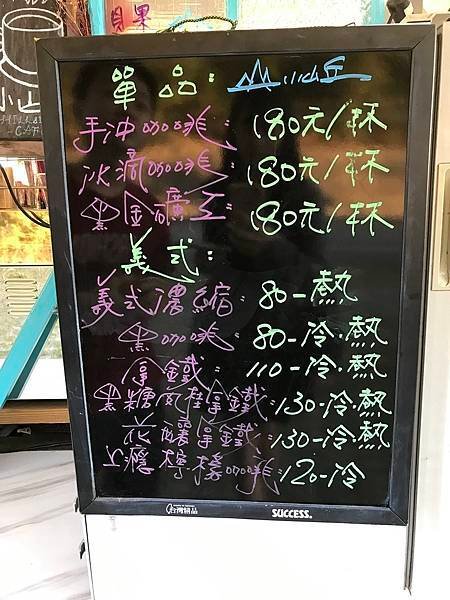 貝果
小山
CAFE
單品： 山ilick丘
手沖咖啡：180元/杯
冰滴咖啡：180元/杯
黑金礦工：180元/杯
義式：
義式濃縮：80-熱
黑咖啡：80-冷.熱
拿鐵：110-冷.熱
黑糖肉桂拿鐵：130-冷.熱
花釀拿鐵：130-冷.熱
上癮檸檬咖啡：120-冷
台灣精品
SUCCESS.